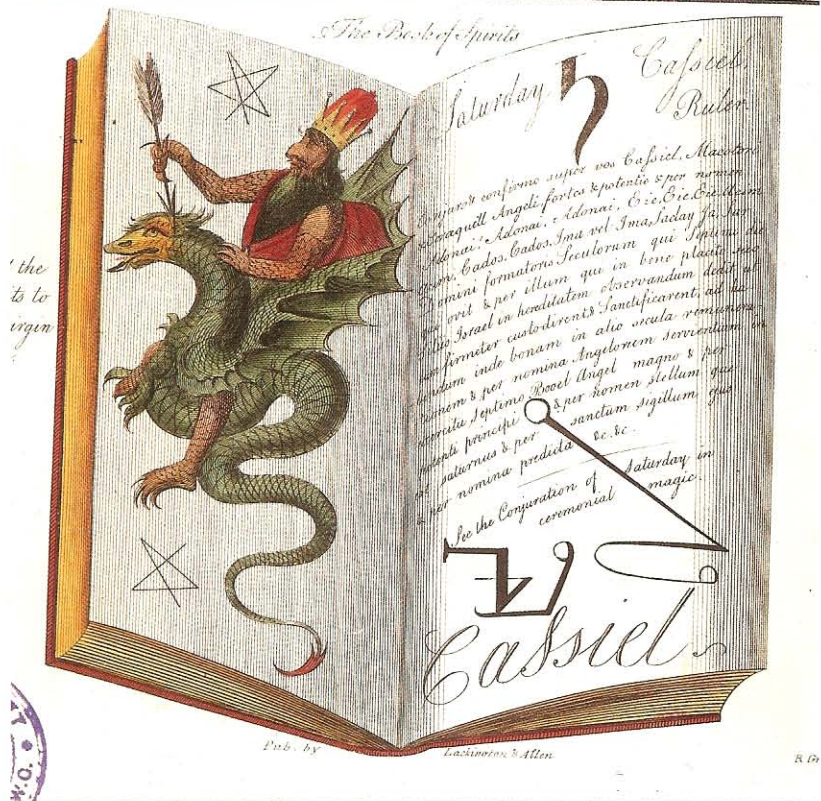 The Book of Spirits
Saturday ♄ Cassiel,
Ruler
Conjuro & confirmo super vos Cassiel, Macoton,
Seraquiel Angeli fortes & potentio & per nomen
Adonai, Adonai, Adonai, Eie, Eie, Eie, Acim
Cados, Cados, Ima vel Ima, Saday, Ja, Sar
Domini formatoris Seculorum qui Septimo die
quievit & per illum qui in bene placito suo
filiis Israel in hereditatem observandum dedit ut
eum firmiter custodirent & Sanctificarent, ad ha
bendum inde bonam in alio secula remunera
tionem & per nomina Angelorum servientium in
exercitu Septimo Booel Angel magno & per
potenti principi & per nomen stellum qua
est saturnus & per sanctum sigillum quo
& per nomina predicta &c. &c.
See the Conjuration of Saturday in
ceremonial magic.
Cassiel
the
ts to
irgin
Pub. by Lackington & Allen
R Gr